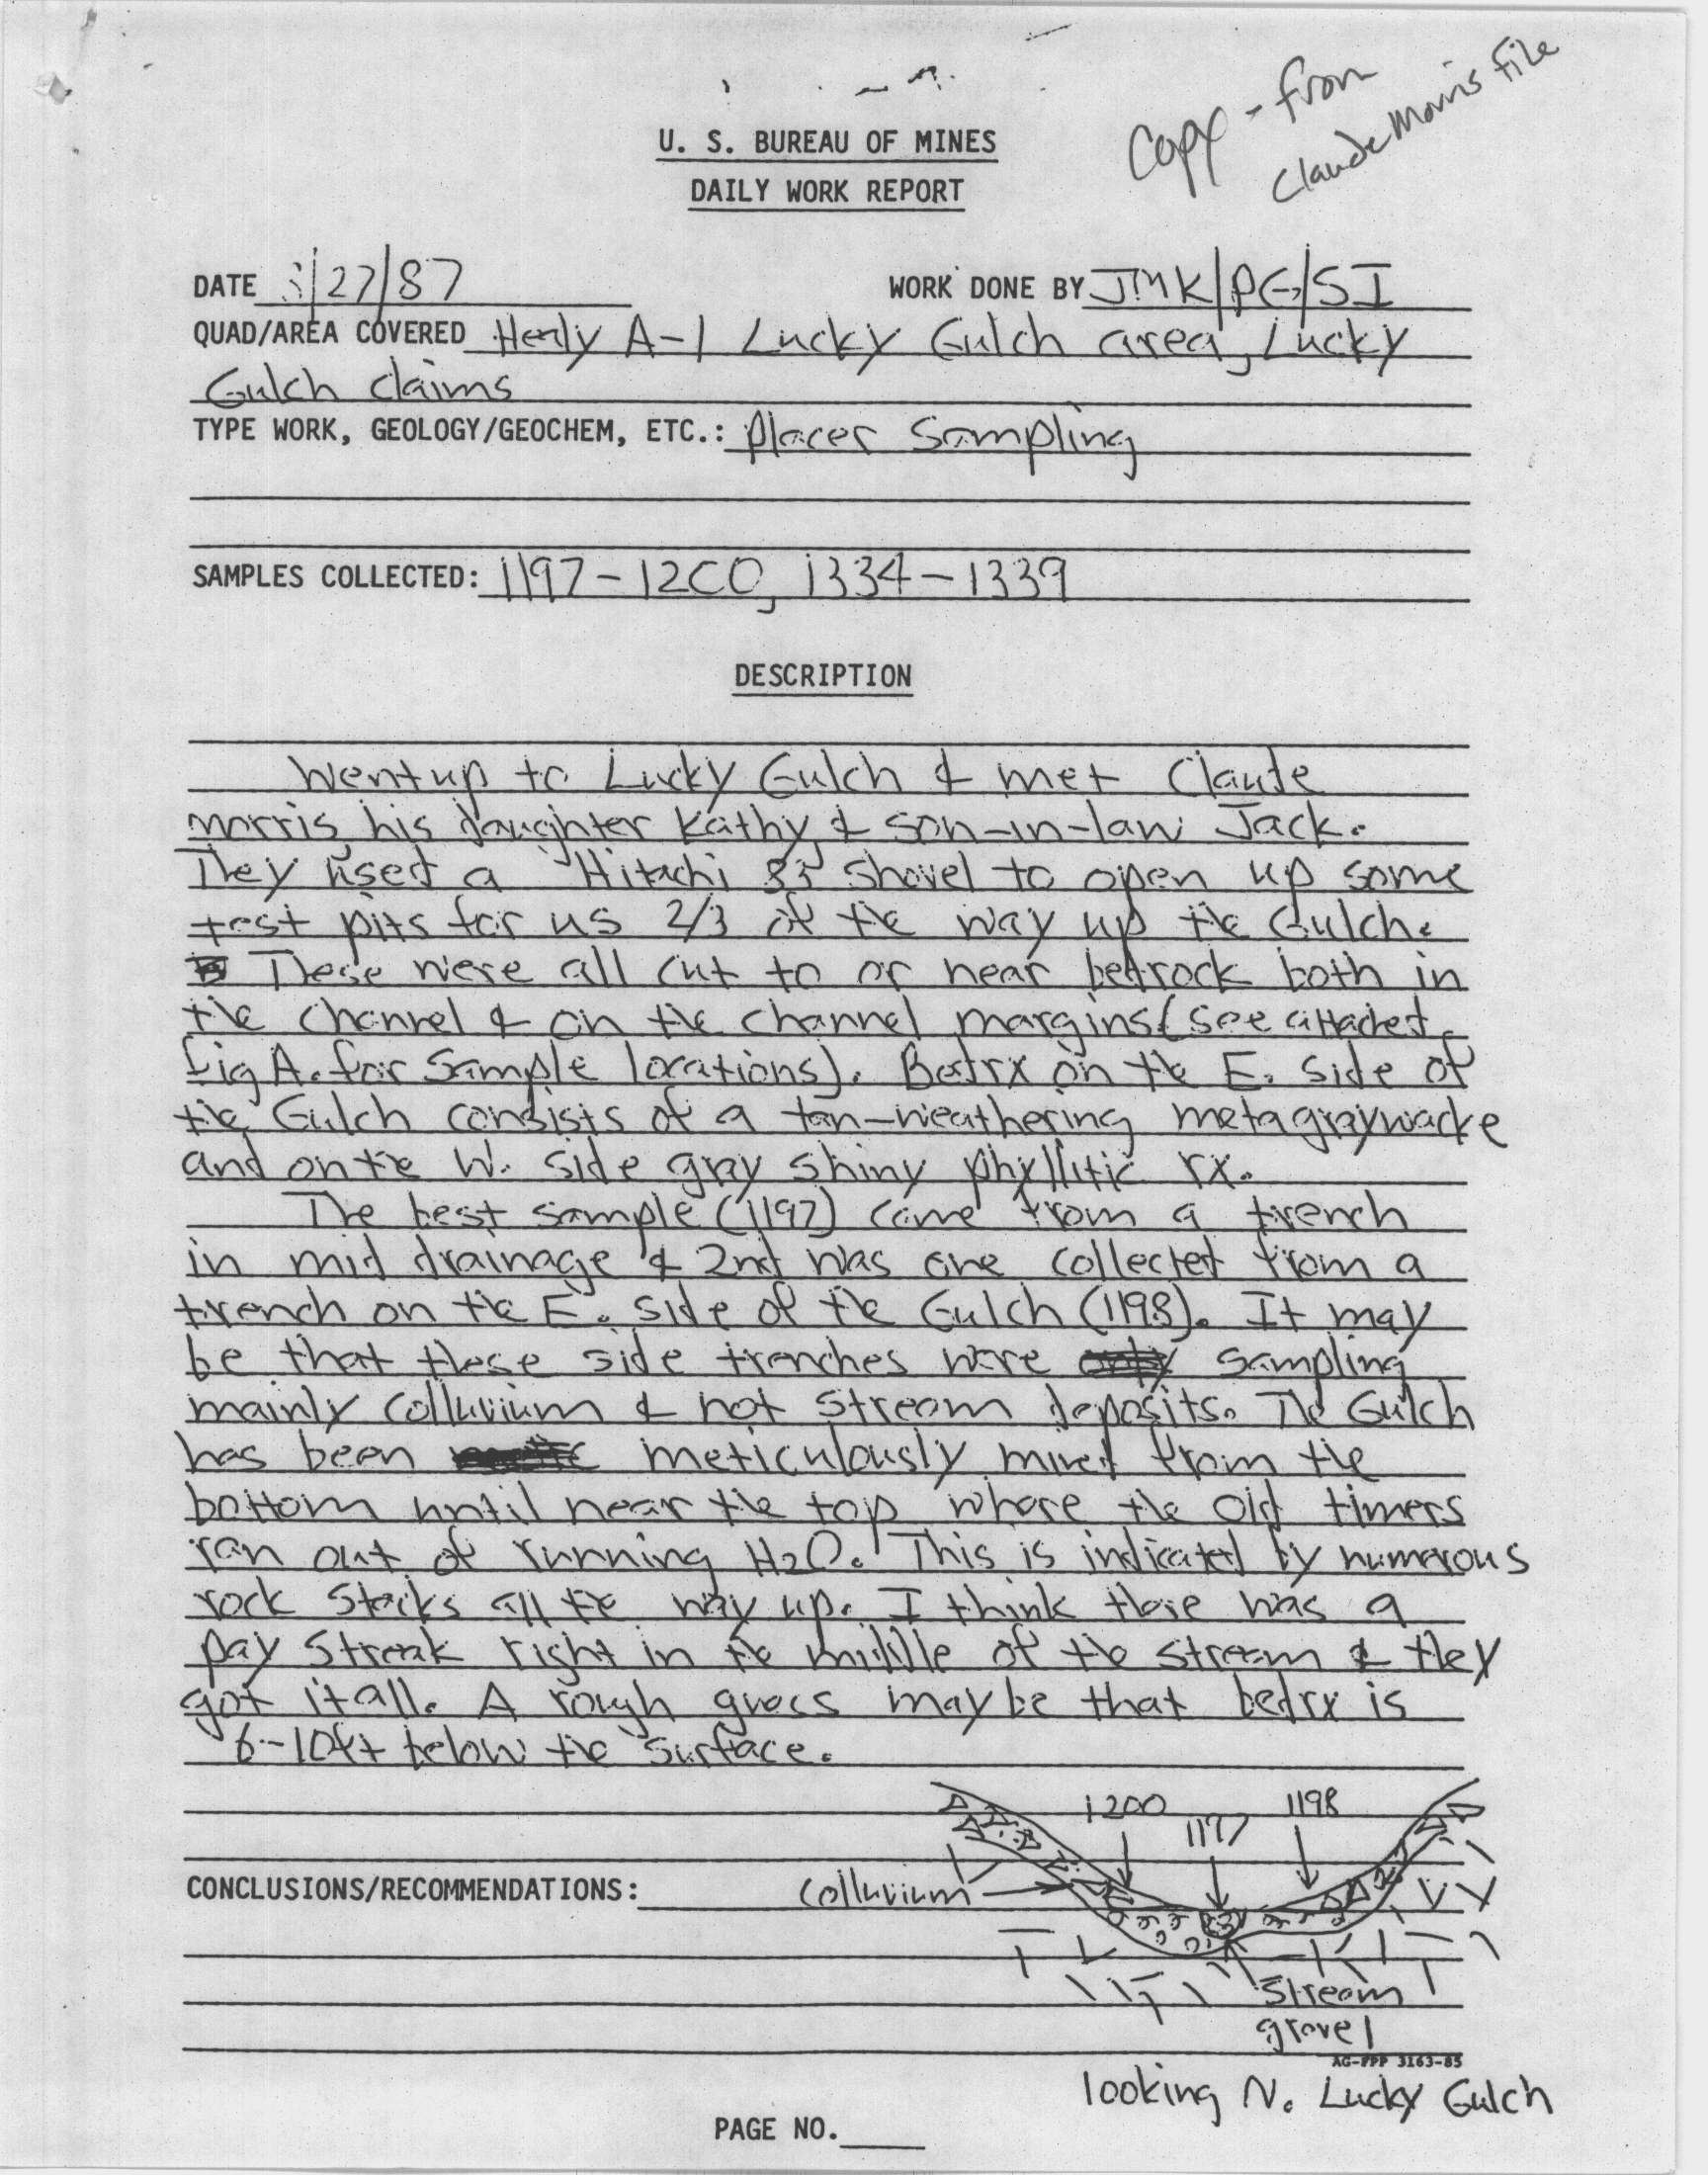 Copy - from
Claude Morris file
U. S. BUREAU OF MINES
DAILY WORK REPORT
DATE /27/87
WORK DONE BY JMK/PG/SI
QUAD/AREA COVERED Healy A-1 Lucky Gulch area, Lucky
Gulch claims
TYPE WORK, GEOLOGY/GEOCHEM, ETC.: placer sampling
SAMPLES COLLECTED: 1197-1200, 1334-1339
DESCRIPTION
Went up to Lucky Gulch & met Claude
Morris, his daughter Kathy, & son-in-law Jack.
They used a Hitachi shovel to open up some
test pits for us 2/3 of the way up the Gulch.
These were all cut to or near bedrock both in
the channel & on the channel margins (see attached
fig A. for sample locations). Bedrx on the E. side of
the Gulch consists of a tan-weathering metagraywacke
and on the W. side gray shiny phyllitic rx.
The best sample (1197) came from a trench
in mid drainage & 2nd was one collected from a
trench on the E. side of the Gulch (1198). It may
be that these side trenches were sampling
mainly colluvium & not stream deposits. The Gulch
has been meticulously mined from the
bottom until near the top where the old timers
ran out of running H2O. This is indicated by numerous
rock stacks all the way up. I think there was a
pay streak right in the middle of the stream & they
got it all. A rough guess may be that bedrx is
6-10ft below the surface.
1200 1197 1198
CONCLUSIONS/RECOMMENDATIONS: colluvium
stream
gravel
AG-FPP 3163-85
looking N. Lucky Gulch
PAGE NO.